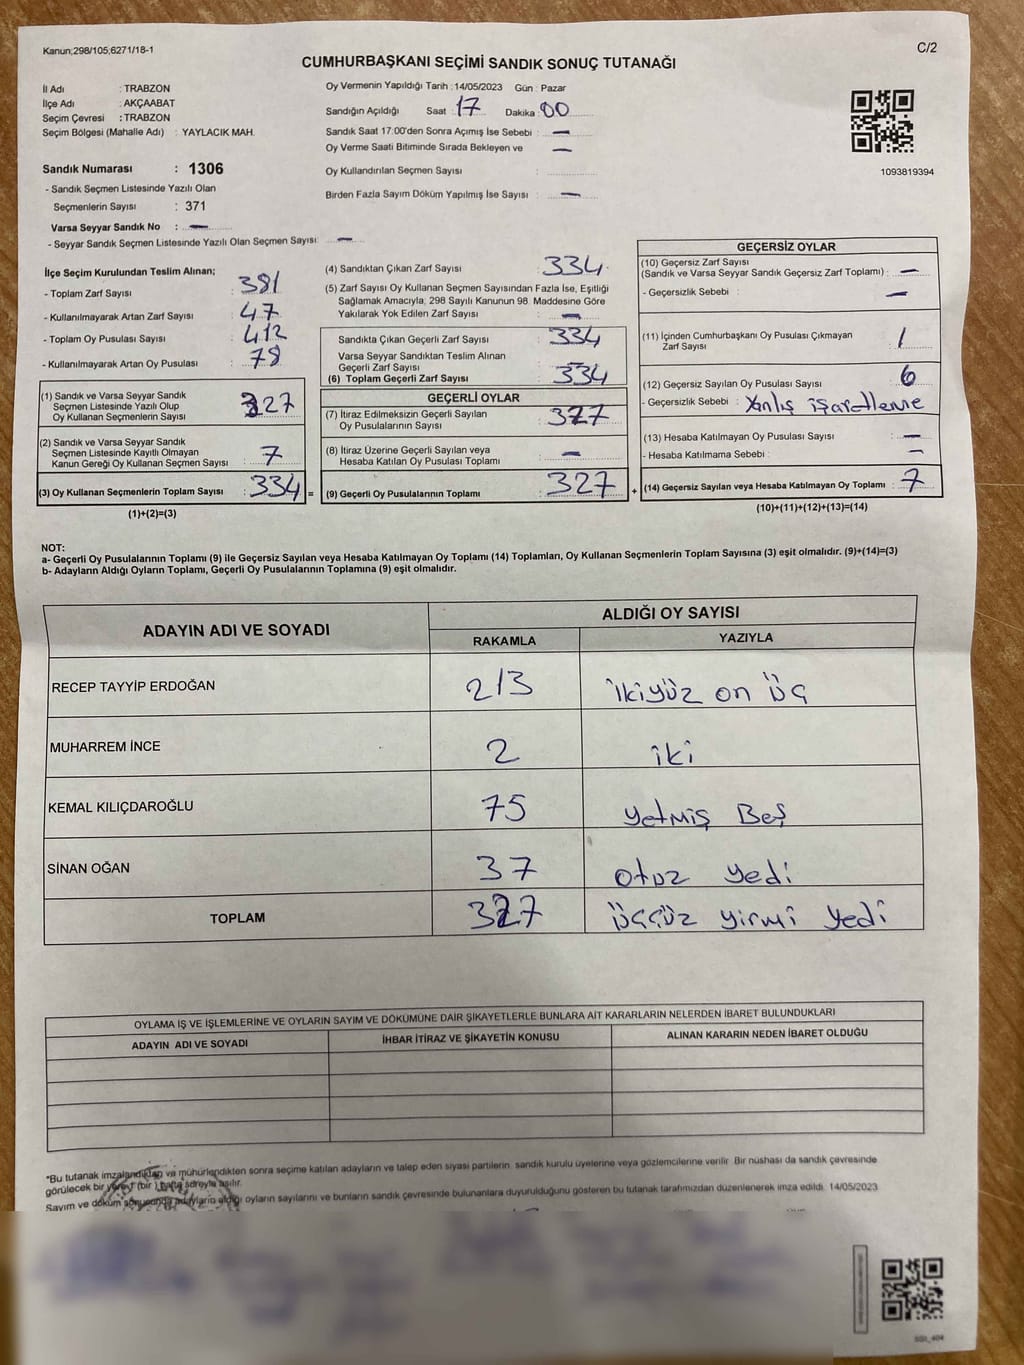 Kanun;298/105;6271/18-1
C/2
CUMHURBAŞKANI SEÇİMİ SANDIK SONUÇ TUTANAĞI
İl Adı : TRABZON
İlçe Adı : AKÇAABAT
Seçim Çevresi : TRABZON
Seçim Bölgesi (Mahalle Adı) : YAYLACIK MAH.
Sandık Numarası : 1306
- Sandık Seçmen Listesinde Yazılı Olan
Seçmenlerin Sayısı : 371
Varsa Seyyar Sandık No : —
- Seyyar Sandık Seçmen Listesinde Yazılı Olan Seçmen Sayısı: —
Oy Vermenin Yapıldığı Tarih : 14/05/2023 Gün : Pazar
Sandığın Açıldığı Saat : 17 Dakika : 00
Sandık Saat 17:00'den Sonra Açımış İse Sebebi : —
Oy Verme Saati Bitiminde Sırada Bekleyen ve —
Oy Kullandırılan Seçmen Sayısı :
Birden Fazla Sayım Döküm Yapılmış İse Sayısı : —
1093819394
İlçe Seçim Kurulundan Teslim Alınan;
- Toplam Zarf Sayısı : 381
- Kullanılmayarak Artan Zarf Sayısı : 47
- Toplam Oy Pusulası Sayısı : 412
- Kullanılmayarak Artan Oy Pusulası : 78
(1) Sandık ve Varsa Seyyar Sandık
Seçmen Listesinde Yazılı Olup
Oy Kullanan Seçmenlerin Sayısı : 327
(2) Sandık ve Varsa Seyyar Sandık
Seçmen Listesinde Kayıtlı Olmayan
Kanun Gereği Oy Kullanan Seçmen Sayısı : 7
(3) Oy Kullanan Seçmenlerin Toplam Sayısı : 334 =
(1)+(2)=(3)
(4) Sandıktan Çıkan Zarf Sayısı : 334
(5) Zarf Sayısı Oy Kullanan Seçmen Sayısından Fazla İse, Eşitliği
Sağlamak Amacıyla, 298 Sayılı Kanunun 98. Maddesine Göre
Yakılarak Yok Edilen Zarf Sayısı : —
Sandıkta Çıkan Geçerli Zarf Sayısı : 334
Varsa Seyyar Sandıktan Teslim Alınan
Geçerli Zarf Sayısı :
(6) Toplam Geçerli Zarf Sayısı : 334
GEÇERLİ OYLAR
(7) İtiraz Edilmeksizin Geçerli Sayılan
Oy Pusulalarının Sayısı : 327
(8) İtiraz Üzerine Geçerli Sayılan veya
Hesaba Katılan Oy Pusulası Toplamı : —
(9) Geçerli Oy Pusulalarının Toplamı : 327 +
GEÇERSİZ OYLAR
(10) Geçersiz Zarf Sayısı
(Sandık ve Varsa Seyyar Sandık Geçersiz Zarf Toplamı) : —
- Geçersizlik Sebebi : —
(11) İçinden Cumhurbaşkanı Oy Pusulası Çıkmayan
Zarf Sayısı : 1
(12) Geçersiz Sayılan Oy Pusulası Sayısı : 6
- Geçersizlik Sebebi : Yanlış işaretleme
(13) Hesaba Katılmayan Oy Pusulası Sayısı : —
- Hesaba Katılmama Sebebi : —
(14) Geçersiz Sayılan veya Hesaba Katılmayan Oy Toplamı : 7
(10)+(11)+(12)+(13)=(14)
NOT:
a- Geçerli Oy Pusulalarının Toplamı (9) ile Geçersiz Sayılan veya Hesaba Katılmayan Oy Toplamı (14) Toplamları, Oy Kullanan Seçmenlerin Toplam Sayısına (3) eşit olmalıdır. (9)+(14)=(3)
b- Adayların Aldığı Oyların Toplamı, Geçerli Oy Pusulalarının Toplamına (9) eşit olmalıdır.
ADAYIN ADI VE SOYADI
ALDIĞI OY SAYISI
RAKAMLA YAZIYLA
RECEP TAYYİP ERDOĞAN 213 ikiyüz on üç
MUHARREM İNCE 2 iki
KEMAL KILIÇDAROĞLU 75 yetmiş Beş
SİNAN OĞAN 37 otuz yedi
TOPLAM 327 üççüz yirmi yedi
OYLAMA İŞ VE İŞLEMLERİNE VE OYLARIN SAYIM VE DÖKÜMÜNE DAİR ŞİKAYETLERLE BUNLARA AİT KARARLARIN NELERDEN İBARET BULUNDUKLARI
ADAYIN ADI VE SOYADI İHBAR İTİRAZ VE ŞİKAYETİN KONUSU ALINAN KARARIN NEDEN İBARET OLDUĞU
*Bu tutanak imzalandıktan ve mühürlendikten sonra seçime katılan adayların ve talep eden siyasi partilerin sandık kurulu üyelerine veya gözlemcilerine verilir. Bir nüshası da sandık çevresinde
görülecek bir yere 1 (bir ) hafta süreyle asılır.
Sayım ve döküm sonucunda adayların aldığı oyların sayılarını ve bunların sandık çevresinde bulunanlara duyurulduğunu gösteren bu tutanak tarafımızdan düzenlenerek imza edildi. 14/05/2023